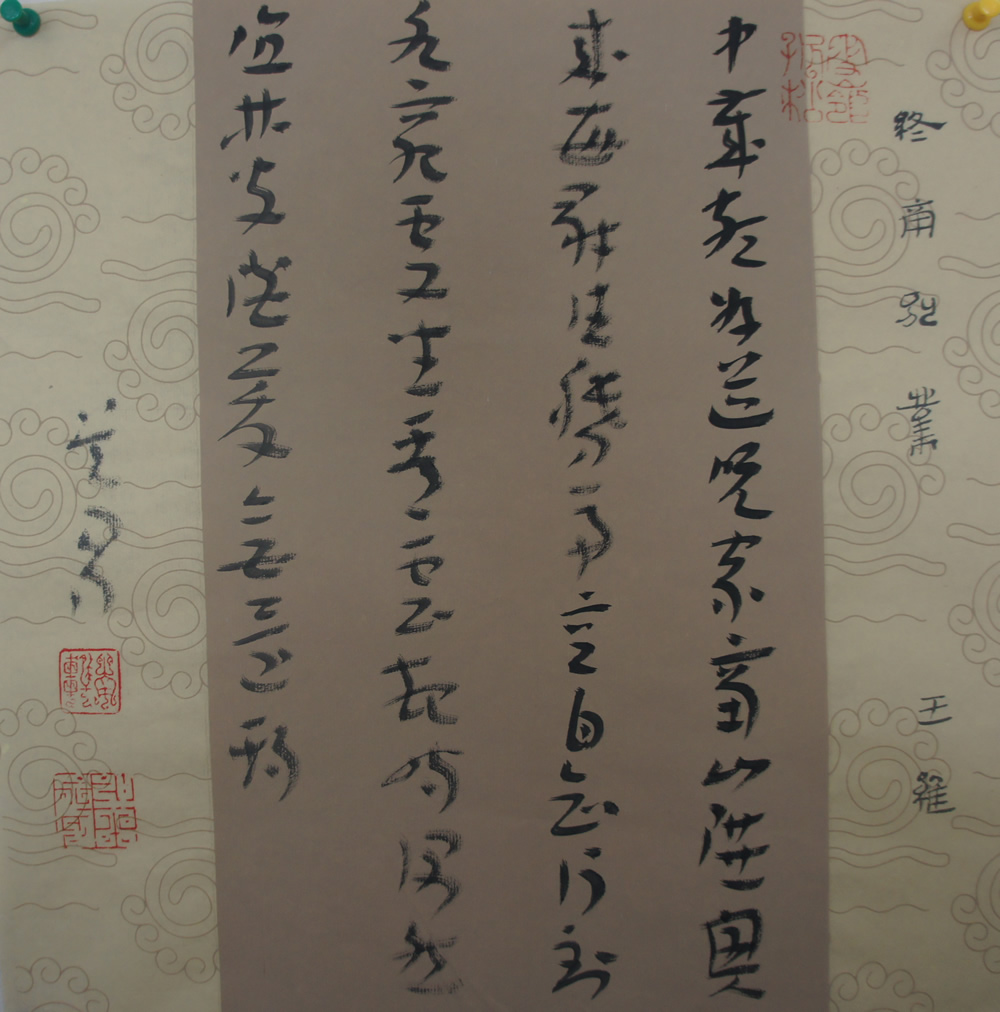 終南別業 王維
中歲頗好道晚家南山陲興
來每獨往勝事空自知行到
水窮處坐看雲起時偶然
值林叟談笑無還期